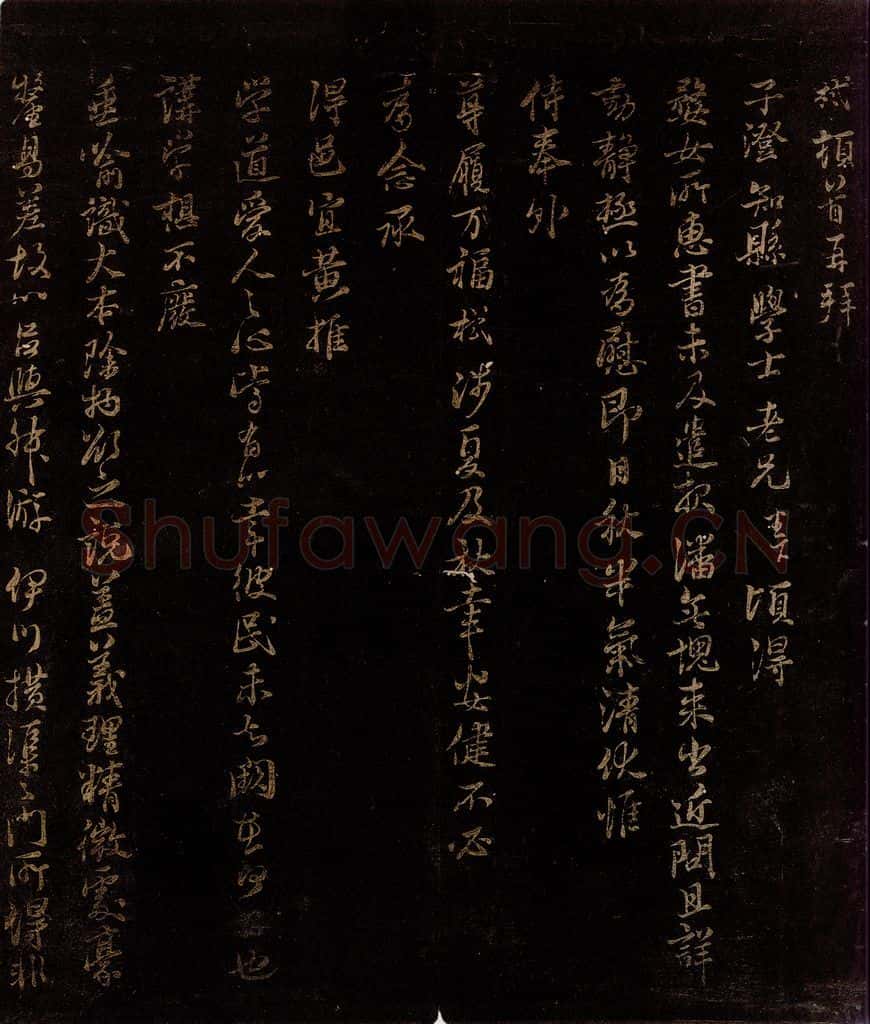 栻頓首再拜
子澄知縣學士老兄 頃得
婺女所惠書未及遣報潘無愧來出近問且詳
動靜極以為慰即日秋半氣清伏惟
侍奉外
尊履万福栻涉夏及秋幸安健不必
為念承
得邑宜黃推
学道愛人之心皆有以幸彼民未知闕 也
講學想不廢
垂喻識大本除物欲之說蓋義理精微處豪
釐易差故以呂與叔游伊川橫渠之門所得非
Shufawang.CN